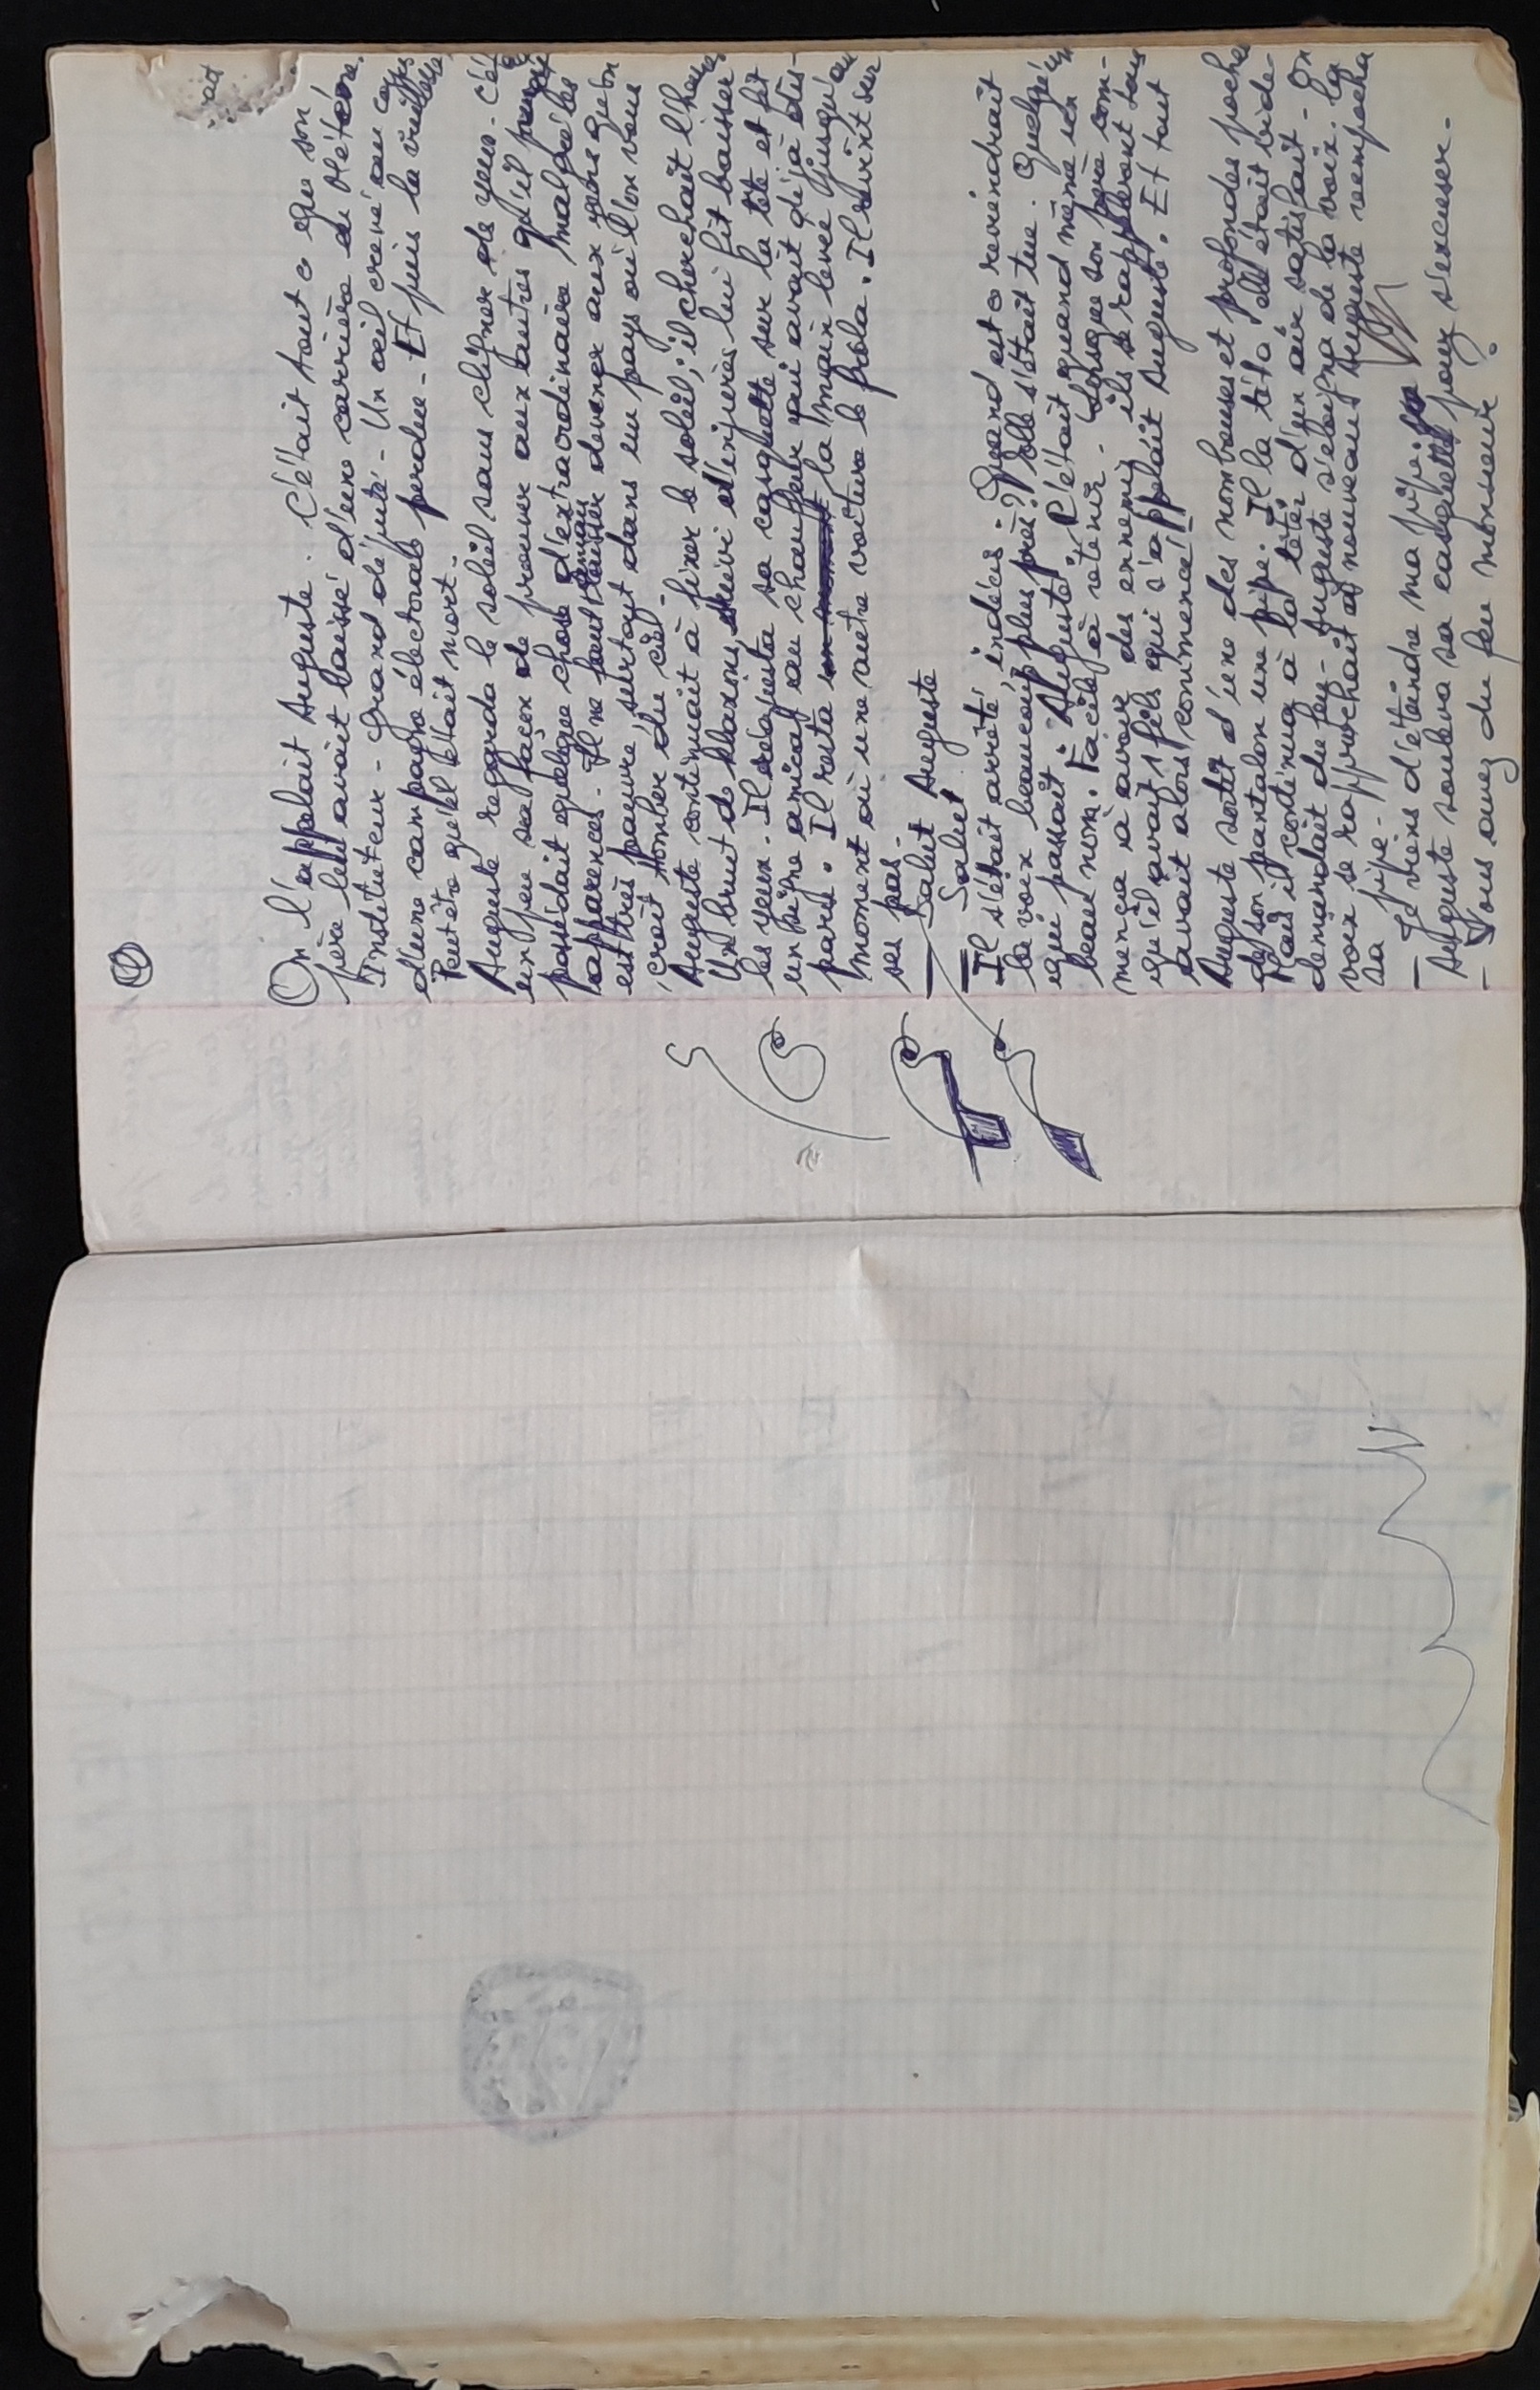 ①
On l'appelait Auguste. C'était tout c que son
père lui avait laissé d'une carrière de
Instituteur - Grand député - Un œil crevé au cours
d'une campagne électorale perdue - Et puis la vieillesse
Peut être qu'il était mort.
Auguste regarda le soleil sans cligner des yeux - C'ét
un peu sa façon de prouver aux autres qu'il
possédait quelque chose d'extraordinaire malgré les
apparences - Il ne faut jamais laisser deviner aux gens qu'on
est très pauvre, surtout dans un pays où l'on vous
croit tomber du ciel -
Auguste continuait à fixer le soleil; il cherchait l'heure
Un bruit de klaxons, suivi d'injures lui fit baisser
les yeux. Il réajusta sa casquette sur la tête et fit
un signe amical au chauffeur qui avait déjà dis-
paru. Il resta la main levée jusqu'au
moment où une autre voiture le frôla. Il revint sur
ses pas -
— Salut Auguste
— Salut
Il s'était arrêté, indécis. Quand est c reviendrait
la voix beaucoup plus près? Elle s'était tue. Quelqu'un
qui passait. Auguste, c'était quand même un
beau nom. Facile à retenir - Lorsque son père com-
mença à avoir des ennemis ils se rappelèrent tous
qu'il avait 1 fils qui s'appelait Auguste. Et tout
avait alors commencé!
Auguste sortit d'une des nombreuses et profondes poches
de son pantalon une pipe. Il la téta elle était vide -
Mais il continua à la téter d'un air satisfait - On
demandait du feu - Auguste s'éloigna de la voix. La
voix se rapprochait et nouveau Auguste rempocha
sa pipe -
— Je viens d'éteindre ma pipe
Auguste souleva sa casquette pour s'excuser -
— Vous avez du feu monsieur?